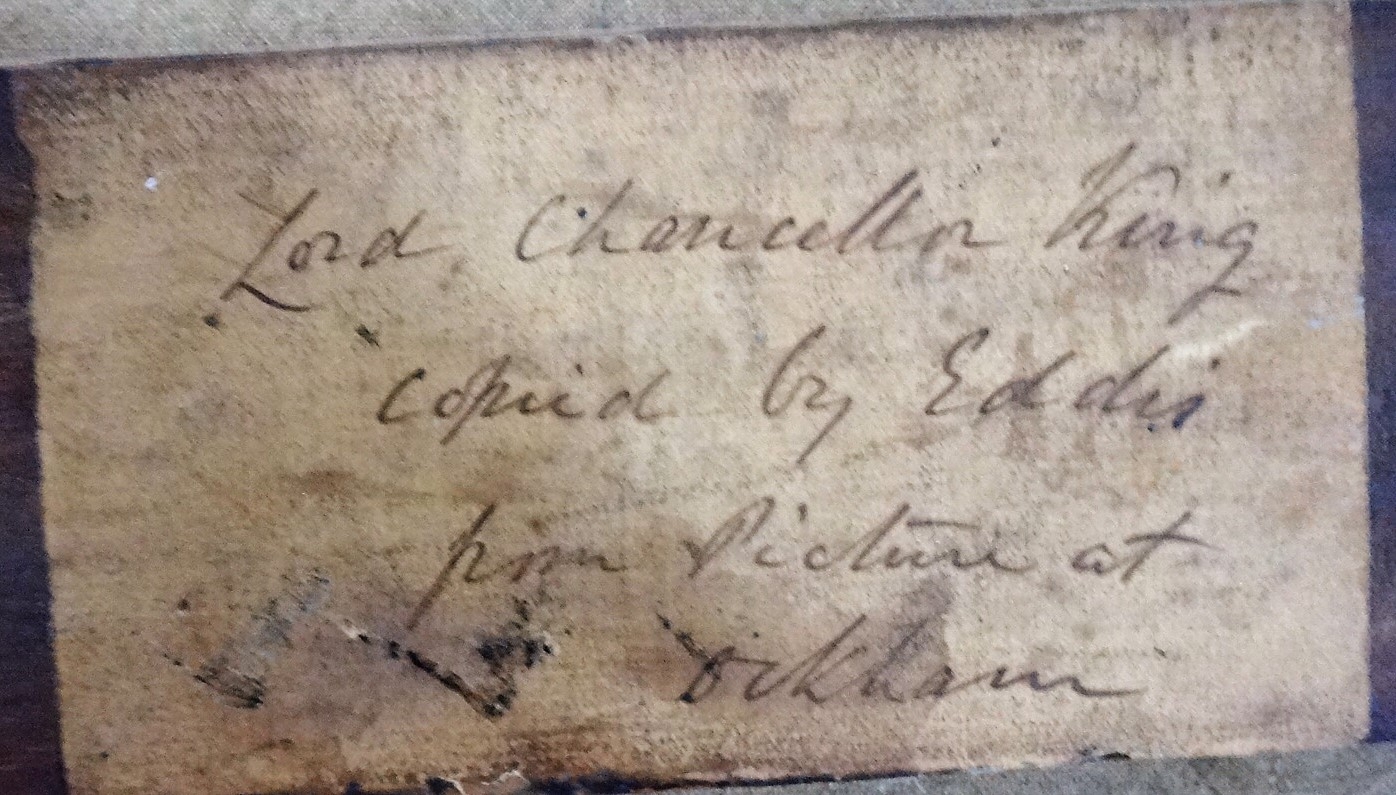 Lord Chancellor King
copied by Eddis
from Picture at
Ockham